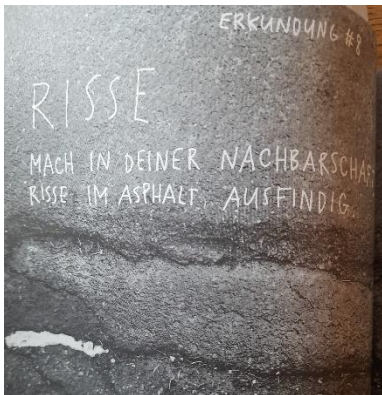 ERKUNDUNG #8
RISSE
MACH IN DEINER NACHBARSCHAFT
RISSE IM ASPHALT, AUSFINDIG.